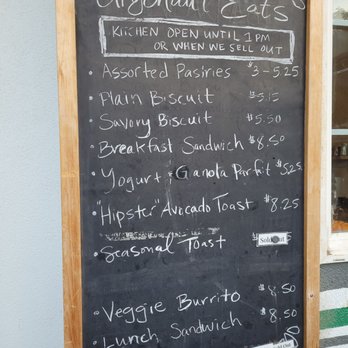 Argonaut Eats
KITCHEN OPEN UNTIL 1PM
OR WHEN WE SELL OUT
• Assorted Pastries $3-5.25
• Plain Biscuit
• Savory Biscuit $5.50
• Breakfast Sandwich $8.50
• Yogurt + Granola Parfait $5.25
• "Hipster" Avocado Toast $8.25
• Seasonal Toast Sold Out
• Veggie Burrito $8.50
• Lunch Sandwich $8.50